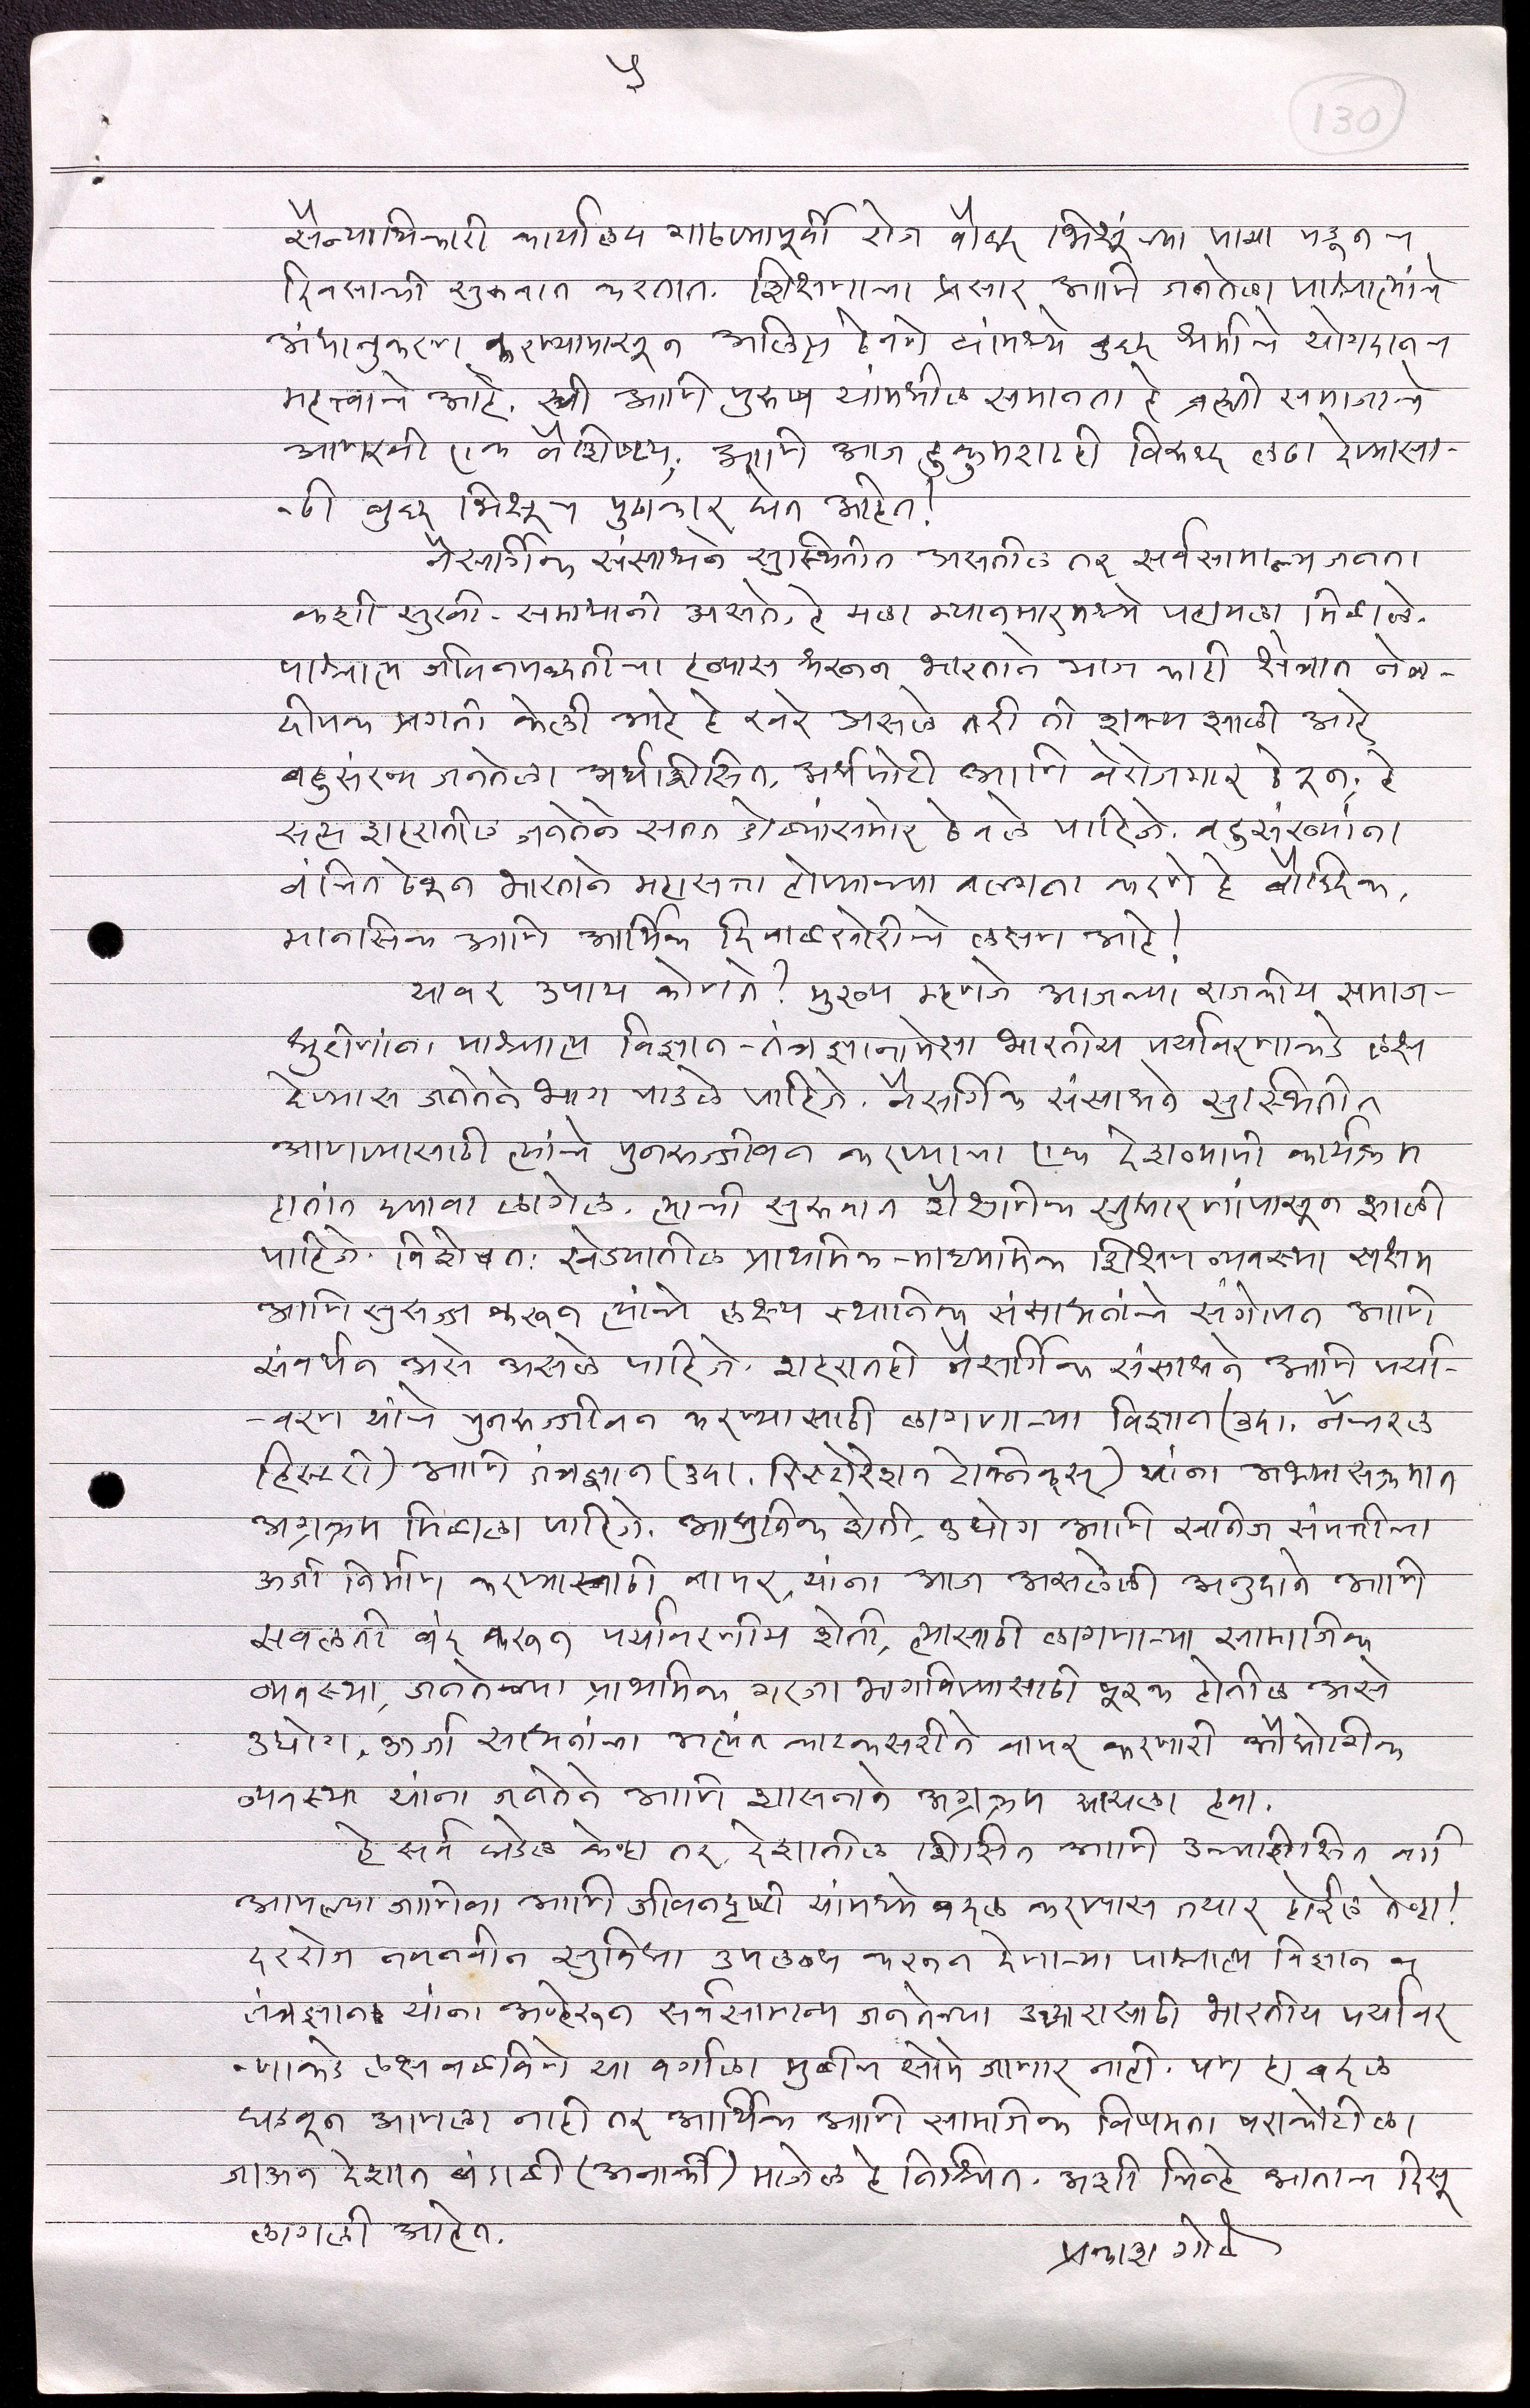 ५
130
सैन्याधिकारी कार्यालय गाठण्यापूर्वी रोज बौद्ध भिक्षूंच्या पाया पडूनच
दिवसाची सुरुवात करतात. शिक्षणाचा प्रसार आणि जनतेला पाश्चात्यांचे
अंधानुकरण करण्यापासून अलिप्त ठेवणे यांमध्ये बुद्ध धर्माचे योगदानच
महत्त्वाचे आहे. स्त्री आणि पुरुष यांमधील समानता हे ब्रह्मी समाजाचे
आणखी एक वैशिष्ट्य; आणि आज हुकुमशाही विरुध्द लढा देण्यासा-
-ठी बुद्ध भिक्षूच पुढाकार घेत आहेत!
नैसर्गिक संसाधने सुस्थितीत असतील तर सर्वसामान्य जनता
कशी सुखी-समाधानी असते, हे मला म्यानमारमध्ये पहायला मिळाले.
पाश्चात्य जीवनपध्दतीचा हव्यास धरून भारताने भाग काही क्षेत्रात नेत्र-
दीपक प्रगती केली आहे हे खरे असले तरी ती शक्य झाली आहे
बहुसंख्य जनतेला अर्धशिक्षित, अर्धपोटी आणि बेरोजगार ठेवून; हे
सत्य शहरातील जनतेने सतत डोळ्यांसमोर ठेवले पाहिजे. बहुसंख्यांना
वंचित ठेवून भारताने महासत्ता होण्याच्या वल्गना करणे हे बौध्दिक,
मानसिक आणि आर्थिक दिवाळखोरीचे लक्षण आहे!
यावर उपाय कोणते? मुख्य म्हणजे आजच्या राजकीय समाज-
धुरीणांना पाश्चात्य विज्ञान-तंत्रज्ञानापेक्षा भारतीय पर्यावरणाकडे लक्ष
देण्यास जनतेने भाग पाडले पाहिजे. नैसर्गिक संसाधने सुस्थितीत
आणण्यासाठी त्यांचे पुनरुज्जीवन करण्याचा एक देशव्यापी कार्यक्रम
हातांत घ्यावा लागेल. त्याची सुरुवात शैक्षणिक सुधारणांपासून झाली
पाहिजे. विशेषत: खेड्यातील प्राथमिक-माध्यमिक शिक्षण व्यवस्था सक्षम
आणि सुसज्ज करून त्यांचे लक्ष्य स्थानिक संसाधनांचे संगोपन आणि
संवर्धन असे असले पाहिजे. शहरातही नैसर्गिक संसाधने आणि पर्या-
-वरण यांचे पुनरुज्जीवन करण्यासाठी लागणाऱ्या विज्ञान (उदा. नॅचरल
हिस्टरी) आणि तंत्रज्ञान (उदा. रिस्टोरेशन टेक्निक्स) यांना अभ्यासक्रमात
अग्रक्रम मिळाला पाहिजे. आधुनिक शेती, उद्योग आणि खनिज संपत्तीचा
ऊर्जा निर्माण करण्यासाठी वापर, यांना आज असलेली अनुदाने आणि
सवलती बंद करून पर्यावरणीय शेती, त्यासाठी लागणाऱ्या सामाजिक
व्यवस्था, जनतेच्या प्राथमिक गरजा भागविण्यासाठी पूरक होतील असे
उद्योग, ऊर्जा साधनांचा अत्यंत काटकसरीने वापर करणारी औद्योगिक
व्यवस्था यांना जनतेने आणि शासनाने अग्रक्रम द्यायला हवा.
हे सर्व घडेल केव्हा तर, देशातील शिक्षित आणि उच्चशिक्षित वर्ग
आपल्या जाणिवा आणि जीवनदृष्टी यांमध्ये बदल करण्यास तयार होईल तेव्हा!
दररोज नवनवीन सुविधा उपलब्ध करून देणाऱ्या पाश्चात्य विज्ञान व
तंत्रज्ञान यांना अव्हेरून सर्वसामान्य जनतेच्या उध्दारासाठी भारतीय पर्यावर
-णाकडे लक्ष वळविणे या वर्गाला मुळीच सोपे जाणार नाही. पण हा बदल
घडवून आणला नाही तर आर्थिक आणि सामाजिक विषमता पराकोटीला
जाऊन देशात बंडाळी (अनार्की) माजेल हे निश्चित. अशी चिन्हे आताच दिसू
लागली आहेत.
प्रकाश गोळे